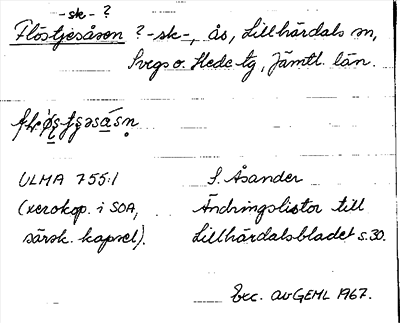 -sk- ?
Flöstjesåsen ? -sk-, ås, Lillhärdals sn,
Svegs o. Hede tg, Jämtl. län.
ULMA 755:1 S. Åsander
(xerokop. i SOA, Ändringslistor till
särsk. kapsel). Lillhärdalsbladet s. 30.
Exc. av GEHL 1967.